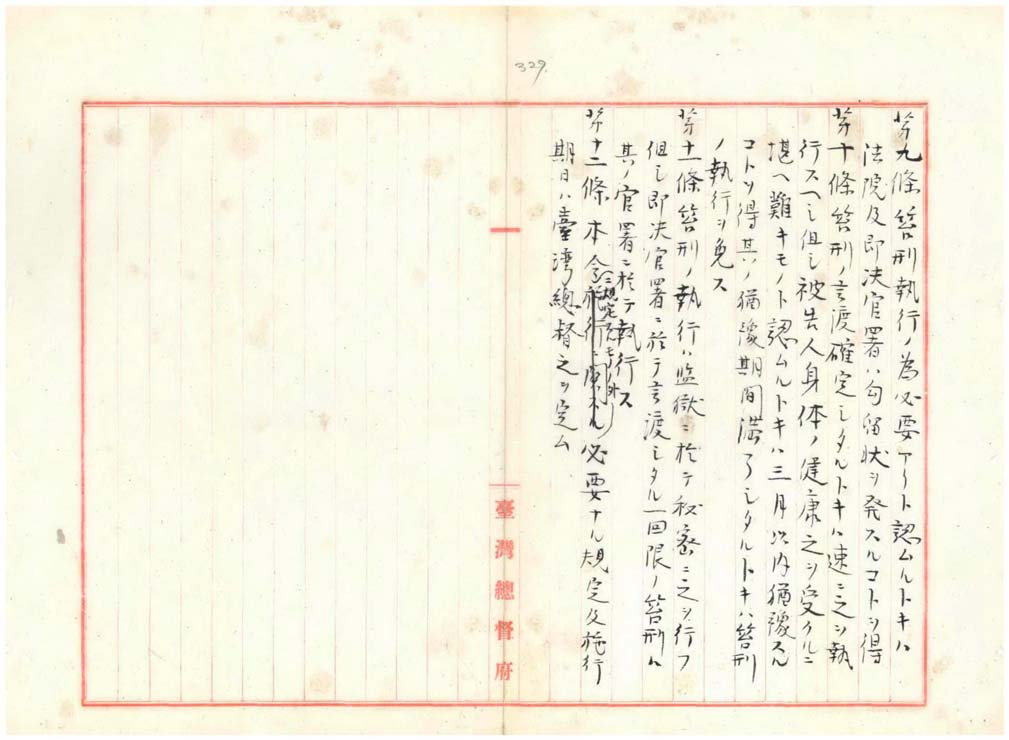 329.
第九條笞刑執行ノ為必要アリト認ムルトキハ
法院及即决官署ハ勾留状ヲ発スルコトヲ得
第十條笞刑ノ言渡確定シタルトキハ速ニ之ヲ執
行スヘシ但シ被告人身体ノ健康之ヲ受クルニ
堪ヘ難キモノト認ムルトキハ三月以内猶豫スル
コトヲ得其ノ猶豫期間満了シタルトキハ笞刑
ノ執行ヲ免ス
第十一條笞刑ノ執行ハ監獄ニ於テ秘密ニ之ヲ行フ
但シ即决官署ニ於テ言渡シタル一回限ノ笞刑ハ
其ノ官署ニ於テ執行ス
ニ規定スルモノノ外
第十二條本令施行ニ関スル必要ナル規定及施行
期日ハ臺湾總督之ヲ定ム
臺灣總督府